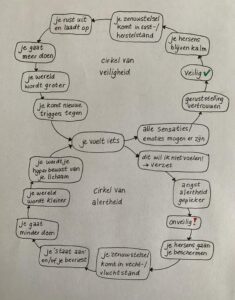 je zenuwstelsel
komt in rust-/
herstelstand
je hersens
blijven kalm
veilig ✓
geruststelling
vertrouwen
alle sensaties/
emoties mogen er zijn
je voelt iets
je komt nieuwe
triggers tegen
je wereld
wordt groter
je gaat
meer doen
je rust uit
en laadt op
cirkel van
veiligheid
die wil ik niet voelen!
→ verzet
angst
alertheid
gepieker
onveilig!
je hersens gaan
je beschermen
je zenuwstelsel
komt in vecht-/
vluchtstand
je 'staat aan'
en/of je bevriest
je gaat
minder doen
je wereld
wordt kleiner
je wordt je
hyperbewust van
je lichaam
cirkel van
alertheid